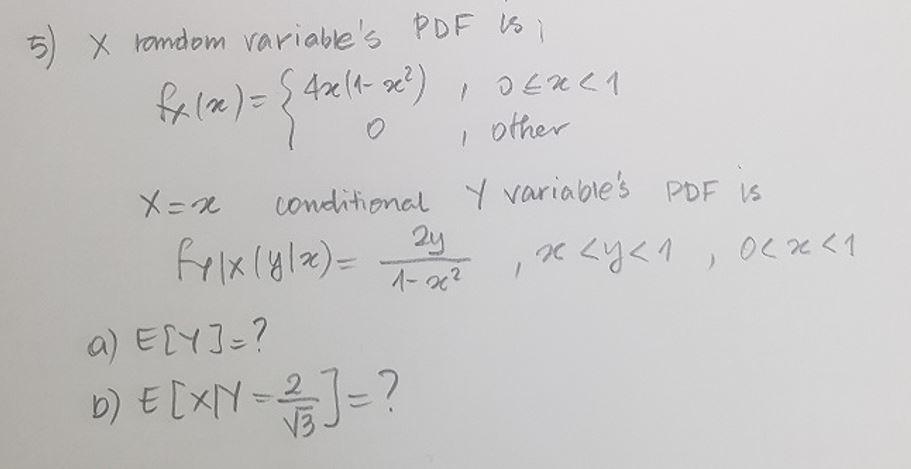 5) X random variable's PDF is;
fX(x) = { 4x(1-x²) , 0 ≤ x < 1
0 , other
X = x conditional Y variable's PDF is
fY|X(y|x) = 2y / 1-x² , x < y < 1 , 0 < x < 1
a) E[Y] = ?
b) E[X|Y = 2/√3] = ?